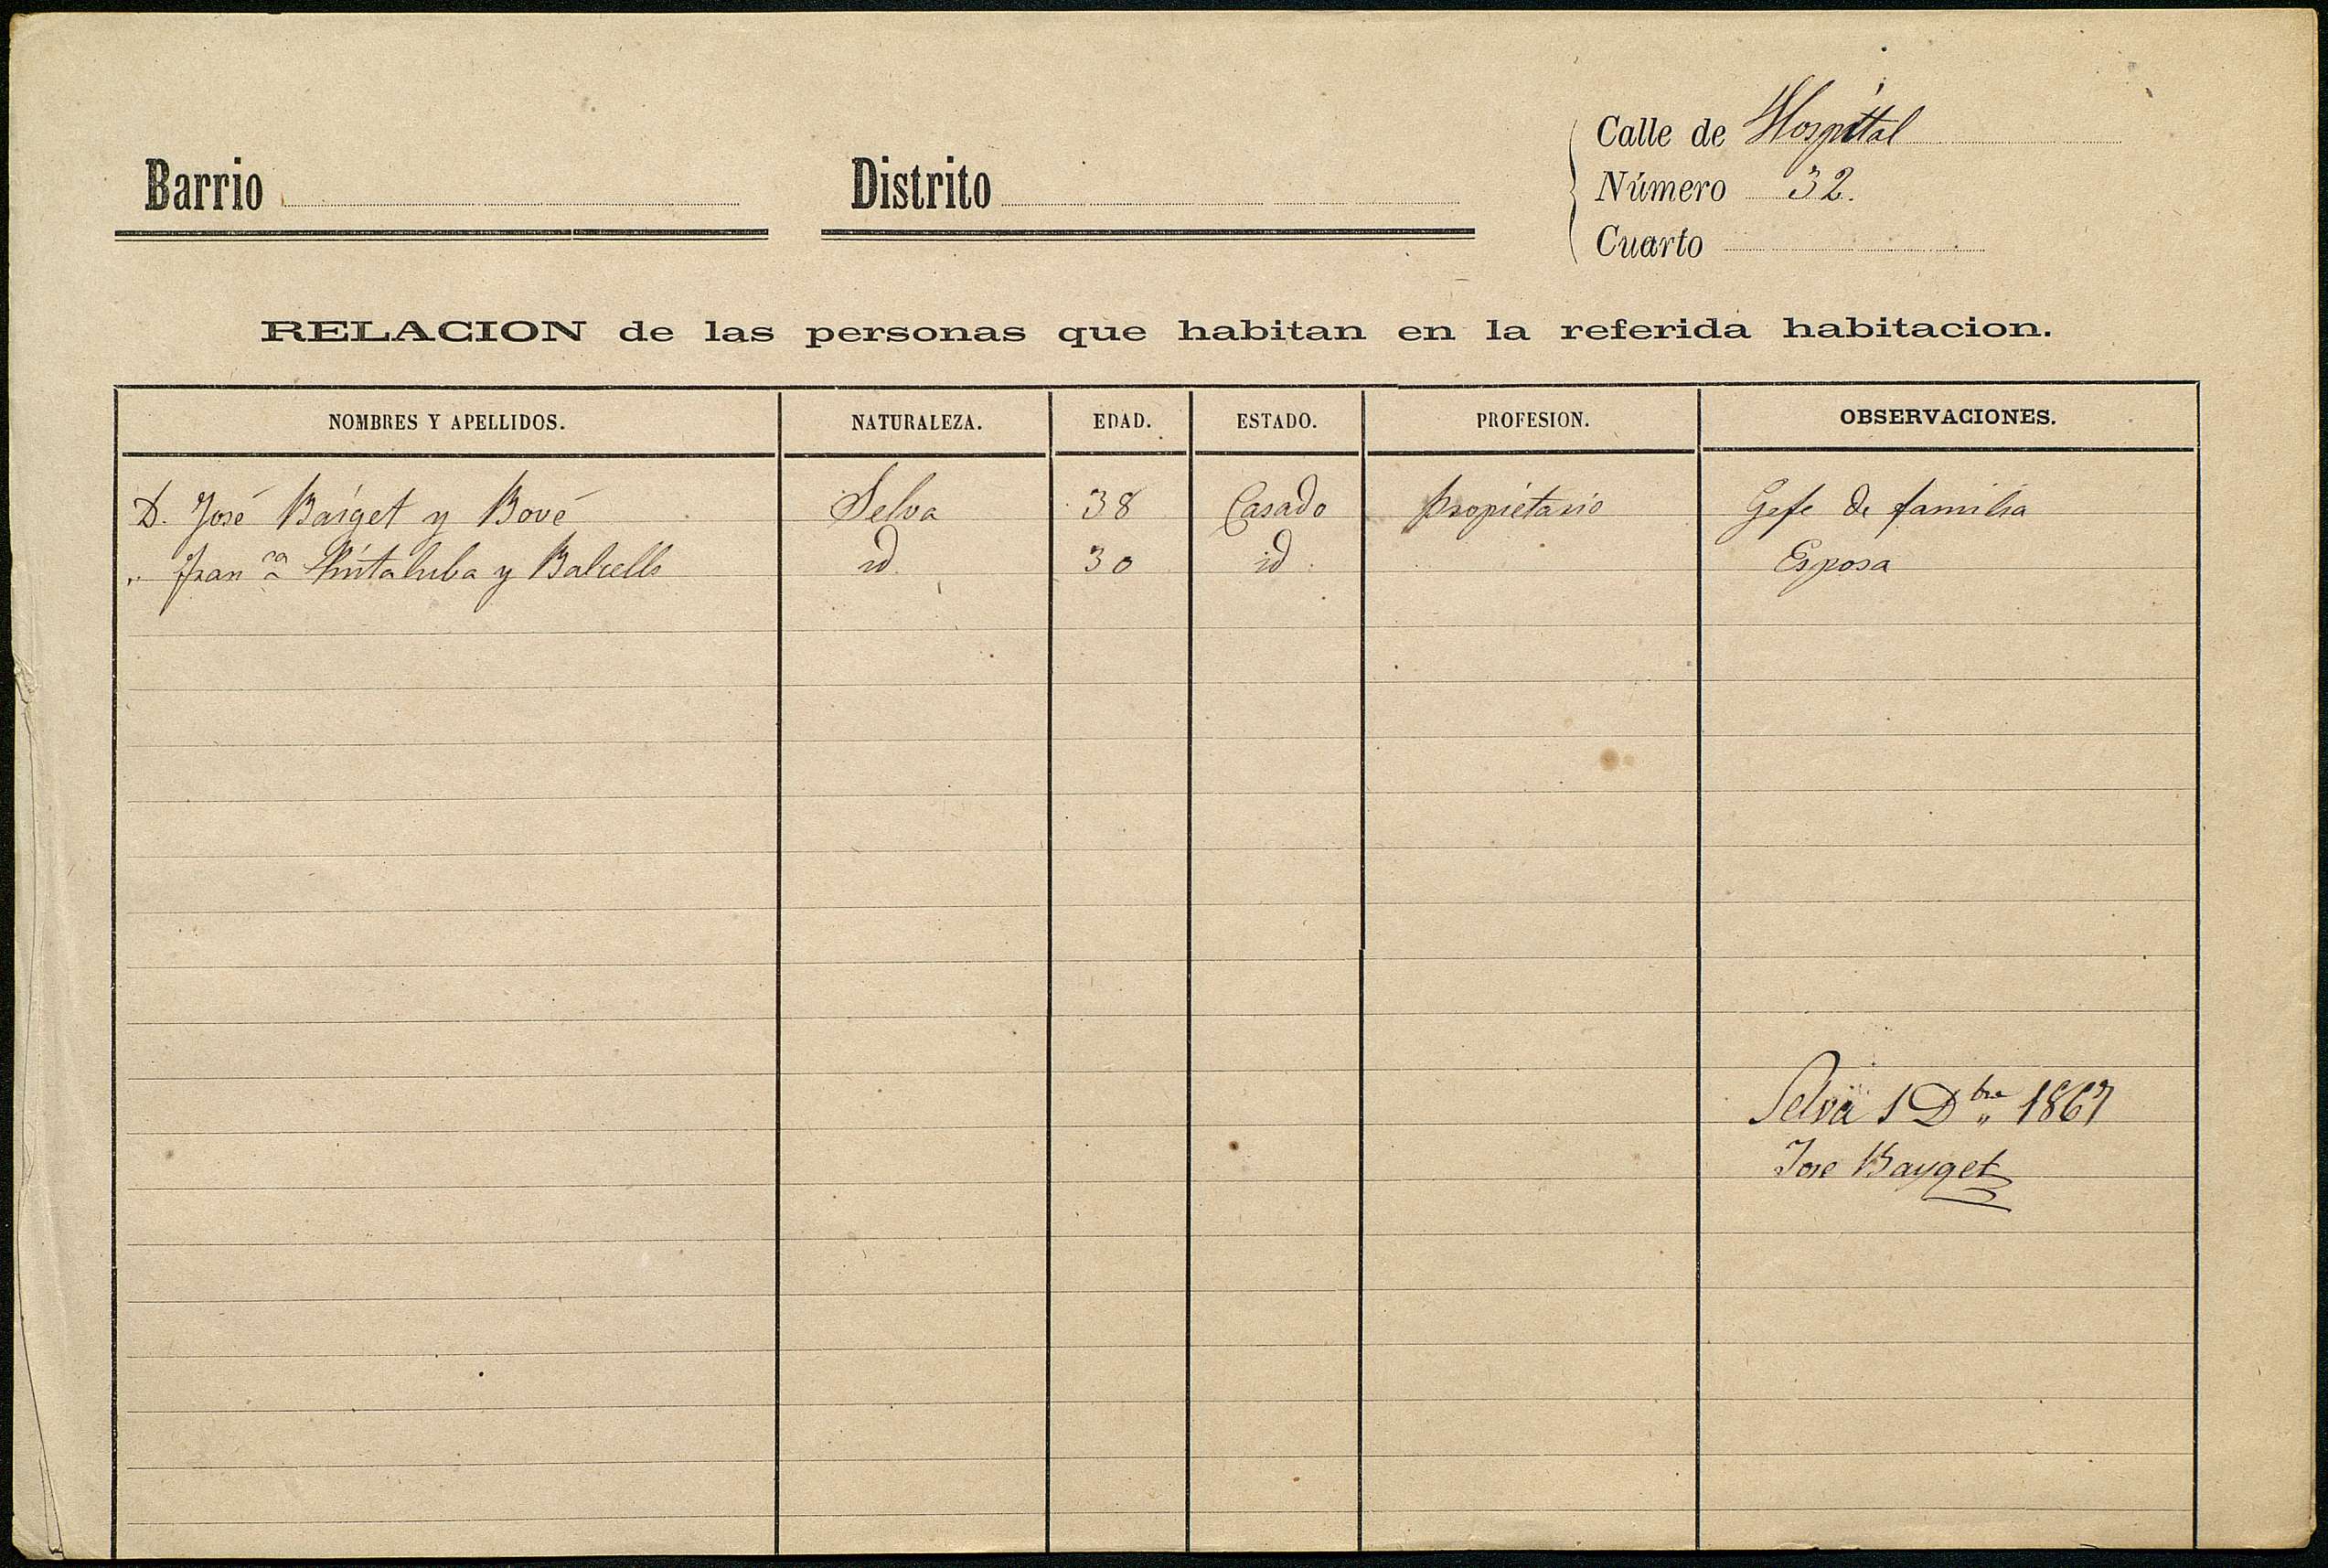 Calle de Hospital
Barrio Distrito Número 32.
Cuarto
RELACION de las personas que habitan en la referida habitacion.
NOMBRES Y APELLIDOS. NATURALEZA. EDAD. ESTADO. PROFESION. OBSERVACIONES.
D. José Baiget y Bové Selva 38 Casado Propietario Gefe de familia
" Fran ca y Balcells id 30 id Esposa
Selva 1 Dbre 1867
Jose Bayget